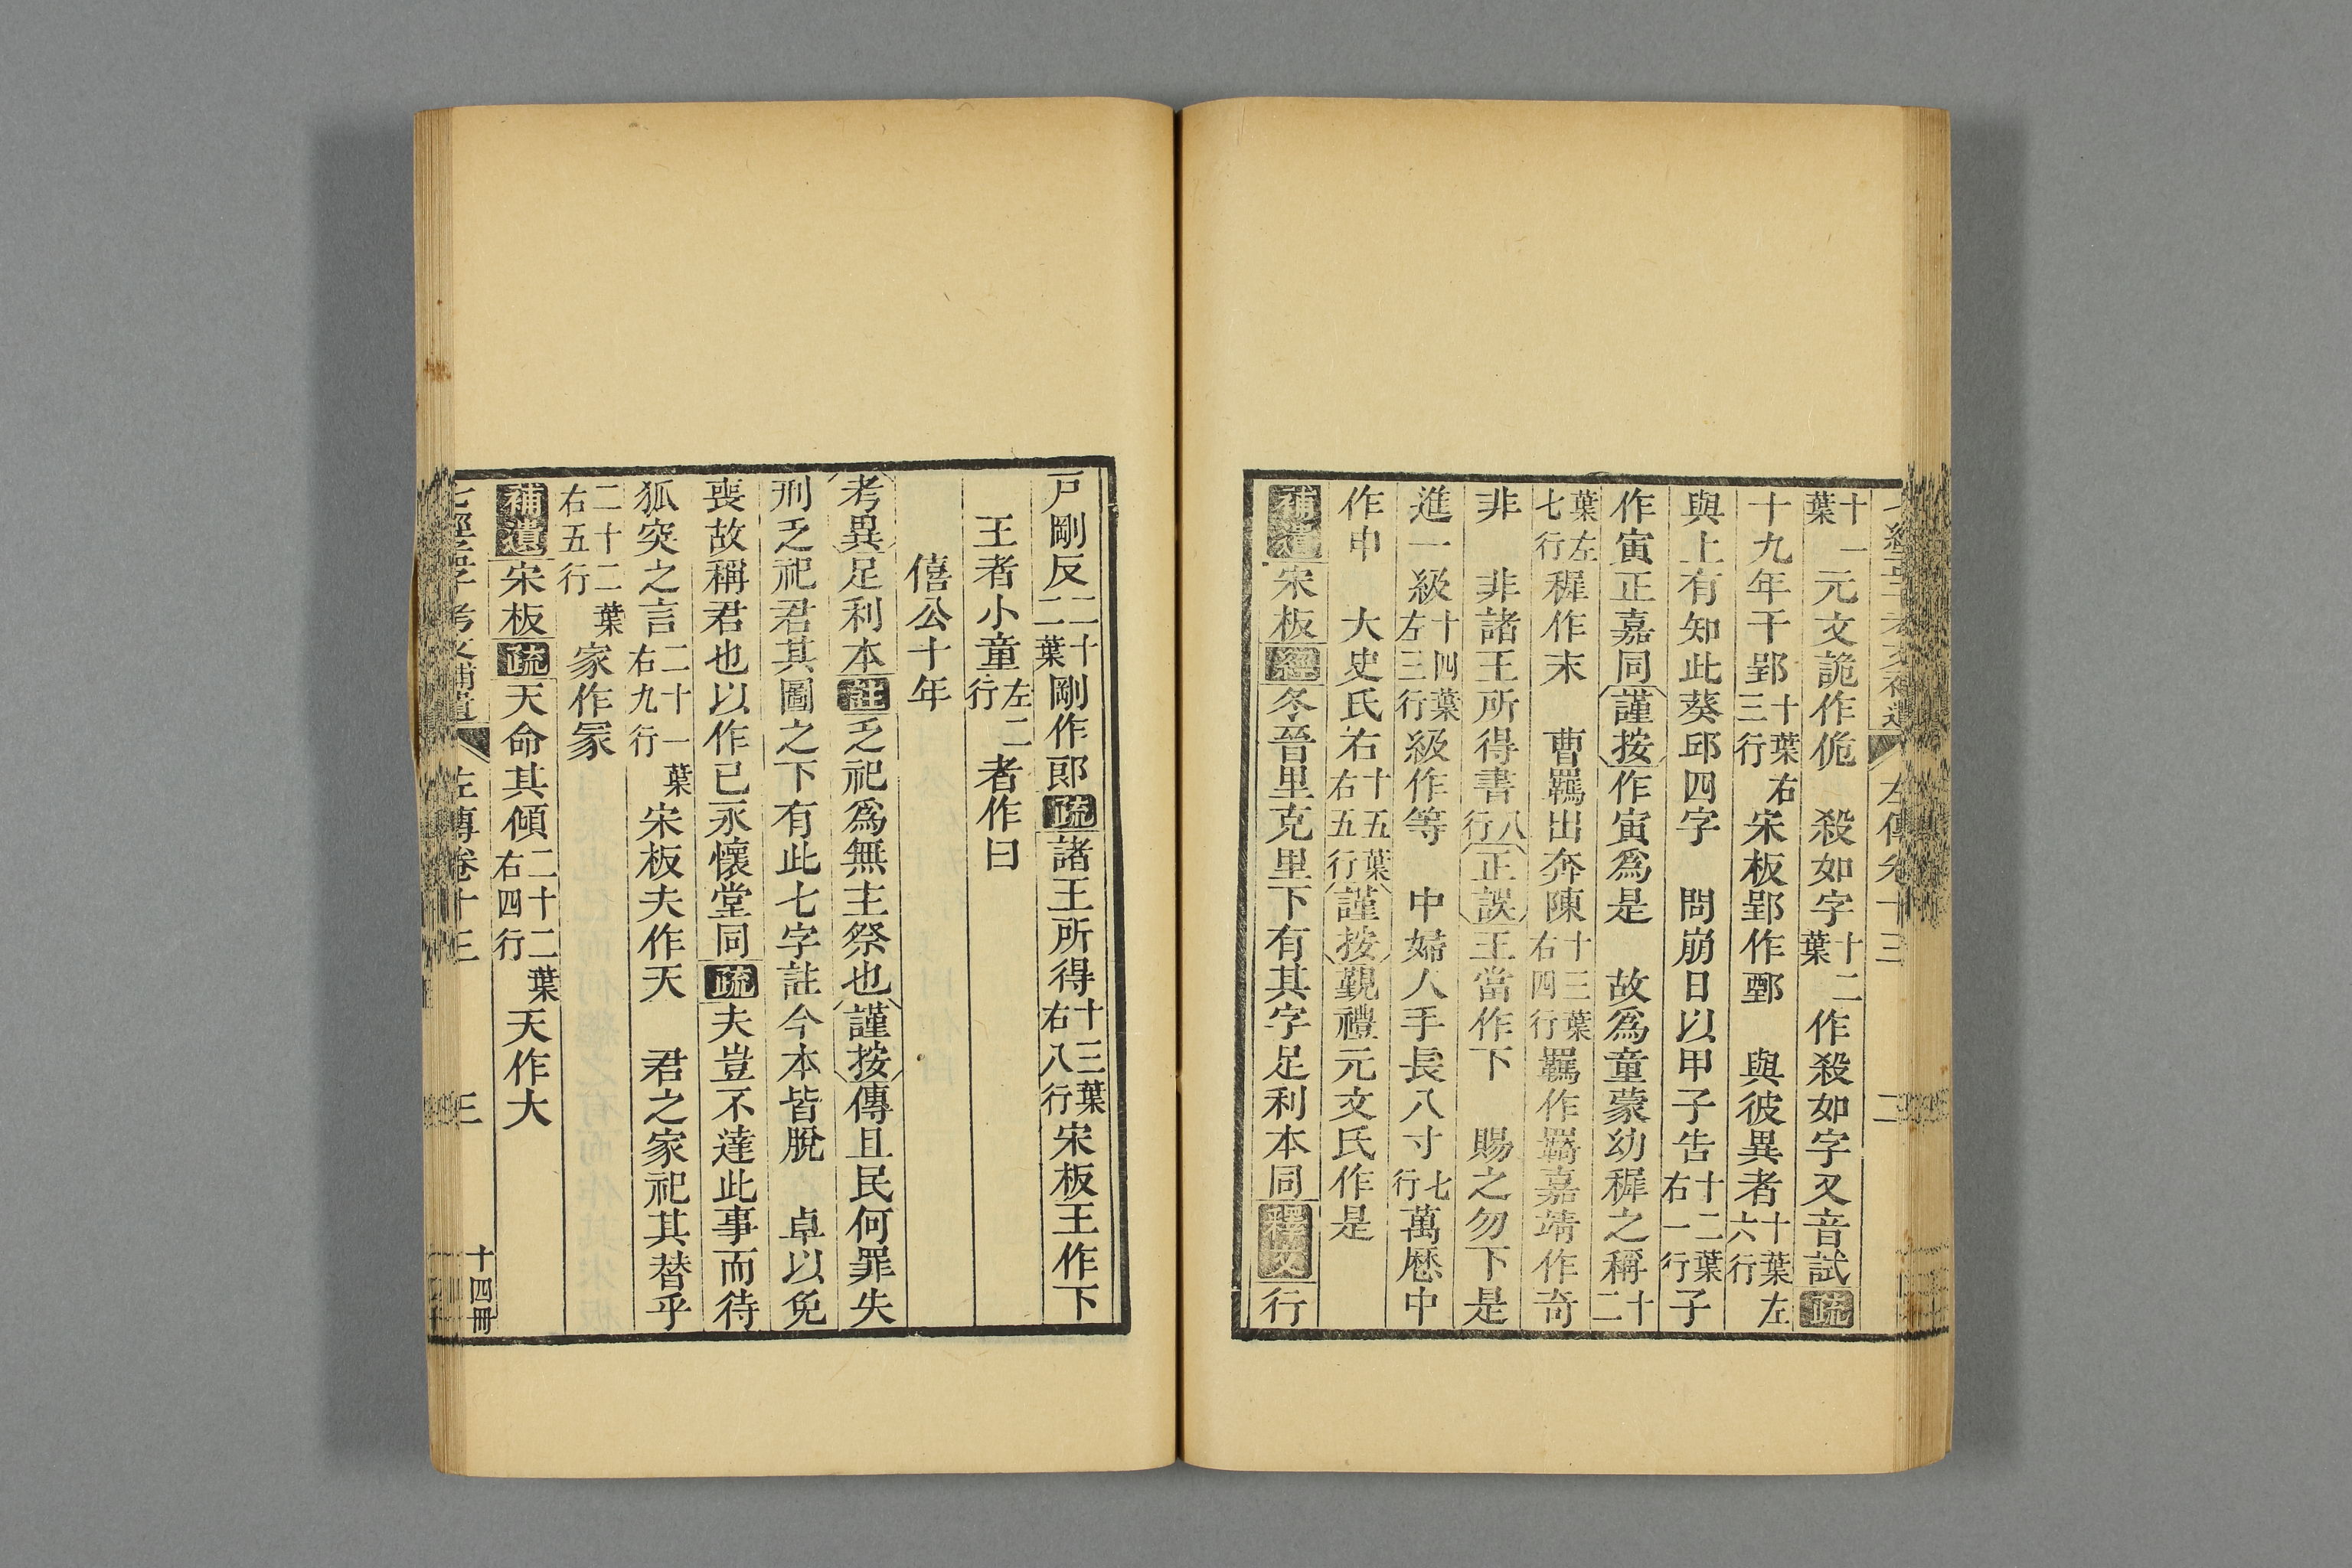 十一葉元文詭作佹　殺如字十二葉作殺如字又音試疏
十九年干郢十葉右三行宋板郢作鄄　與彼異者十葉左六行
與上有知此葵邱四字　問崩日以甲子告十二葉右一行子
作寅正嘉同謹按作寅爲是　故爲童蒙幼稺之稱十二
葉左七行稺作末　曹羈出奔陳十三葉右四行羈作羇嘉靖作奇
非　非諸王所得書八行正誤王當作下　賜之勿下是
進一級十四葉左三行級作等　中婦人手長八寸七行萬厯中
作巾　大史氏右十五葉右五行謹按覲禮元文氏作是
補遺宋板經冬晉里克里下有其字足利本同釋文行
戸剛反十二葉剛作郎疏諸王所得十三葉右八行宋板王作下
王者小童左二行者作曰
僖公十年
考異足利本註乏祀爲無主祭也謹按傳且民何罪失
刑乏祀君其圖之下有此七字註今本皆脫　卓以免
喪故稱君也以作已永懷堂同疏夫豈不達此事而待
狐突之言二十一葉右九行宋板夫作天　君之家祀其替乎
二十二葉右五行家作冢
補遺宋板疏天命其傾二十二葉右四行天作大
左傳卷十三
三
十四冊